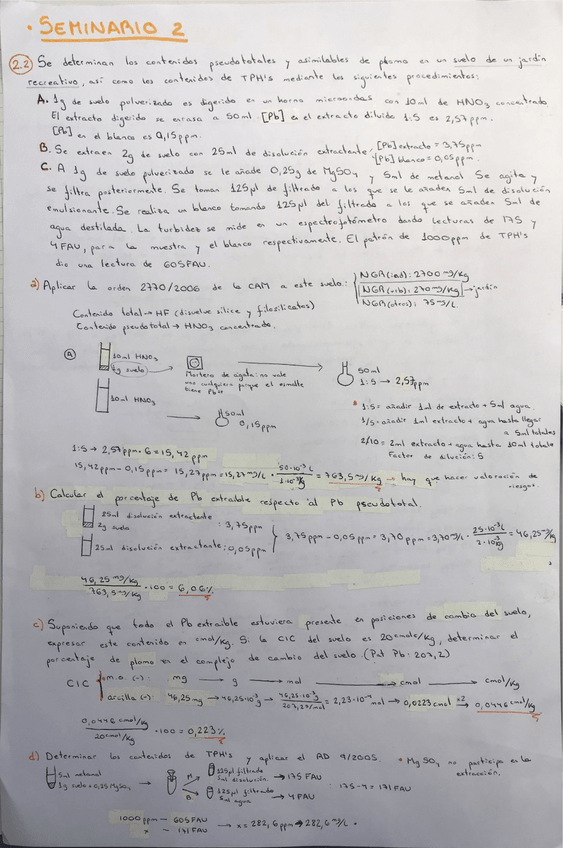 • SEMINARIO 2
2.2 Se determinan los contenidos pseudototales y asimilables de plomo en un suelo de un jardín
recreativo, así como los contenidos de TPH's mediante los siguientes procedimientos:
A. 1g de suelo pulverizado es digerido en un horno microondas con 10ml de HNO3 concentrado
El extracto digerido se enrasa a 50ml. [Pb] en el extracto diluido 1:5 es 2,57ppm.
[Pb] en el blanco es 0,15ppm.
B. Se extraen 2g de suelo con 25ml de disolución extractante. [Pb] extracto = 3,75ppm
[Pb] blanco = 0,05ppm.
C. A 1g de suelo pulverizado se le añade 0,25g de MgSO4 y 5ml de metanol. Se agita y
se filtra posteriormente. Se toman 125µl de filtrado a los que se le añaden 5ml de disolución
emulsionante. Se realiza un blanco tomando 125µl del filtrado a los que se añaden 5ml de
agua destilada. La turbidez se mide en un espectrofotómetro dando lecturas de 175 y
4 FAU, para la muestra y el blanco respectivamente. El patrón de 1000ppm de TPH's
dio una lectura de 605FAU.
a) Aplicar la orden 2770/2006 de la CAM a este suelo:
NGR(ind): 2700 mg/kg
NGR(urb): 270 mg/kg → jardín
NGR(otros): 75 mg/L
Contenido total → HF (disuelve sílice y filosilicatos)
Contenido pseudototal → HNO3 concentrado.
A
10ml HNO3
1g suelo
Mortero de ágata: no vale
uno cualquiera porque el esmalte
tiene Pb
50ml
1:5 → 2,57ppm
10ml HNO3
50ml
0,15ppm
* 1:5 = añadir 1ml de extracto + 5ml agua
1/5 = añadir 1ml extracto + agua hasta llegar
a 5ml totales
2/10 = 2ml extracto + agua hasta 10ml totales
Factor de dilución: 5
1:5 → 2,57ppm · 6 = 15,42 ppm
15,42ppm - 0,15ppm = 15,27ppm = 15,27mg/L · 50·10⁻³L / 1·10⁻³kg = 763,5mg/kg → hay que hacer valoración de
riesgos.
b) Calcular el porcentaje de Pb extraíble respecto al Pb pseudototal.
25ml disolución extractante
2g suelo
: 3,75ppm
25ml disolución extractante: 0,05ppm
3,75ppm - 0,05ppm = 3,70ppm = 3,70mg/L · 25·10⁻³L / 2·10⁻³kg = 46,25mg/kg
46,25 mg/kg / 763,5mg/kg · 100 = 6,06%
c) Suponiendo que todo el Pb extraíble estuviera presente en posiciones de cambio del suelo,
expresar este contenido en cmol/kg. Si la CIC del suelo es 20cmolc/kg, determinar el
porcentaje de plomo en el complejo de cambio del suelo. (Pat Pb: 207,2)
CIC
m.o. (-)
arcilla (-)
mg → g → mol → cmol → cmol/kg
46,25mg → 46,25·10⁻³g → 46,25·10⁻³g / 207,2g/mol = 2,23·10⁻⁴mol → 0,0223cmol x2 → 0,0446cmol/kg
0,0446 cmol/kg / 20cmol/kg · 100 = 0,223%
d) Determinar los contenidos de TPH's y aplicar el RD 9/2005.
* MgSO4 no participa en la
extracción.
5ml metanol
1g suelo + 0,25 MgSO4
M.
125µl filtrado
5ml disolución. → 175 FAU
B.
125µl filtrado
5ml agua → 4 FAU
: 175-4 = 171FAU
1000ppm — 605FAU
x — 171FAU
→ x = 282,6ppm → 282,6mg/L •